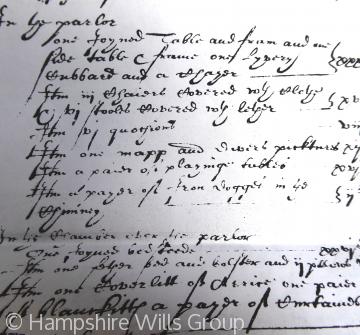 In the parlor
one Joyned Table and fram and one
side table & frame one lyvery
Cubbard and a Chayer
Itm iij Chaiers Covered wth
& vj stooles Covered wth lether
Itm vj quotions
Itm one mapp and divers picktures
Itm a paier of playinge tables
Itm a payer of Iron dogges in ye
Chimney
In the Chamber over the parlor
One Joyned bedsteede
Itm one fether bed one bolster and ij pillowes
Itm one Coverlitt of Arrice one paier
of blancketts a payer of Curtaines
© Hampshire Wills Group